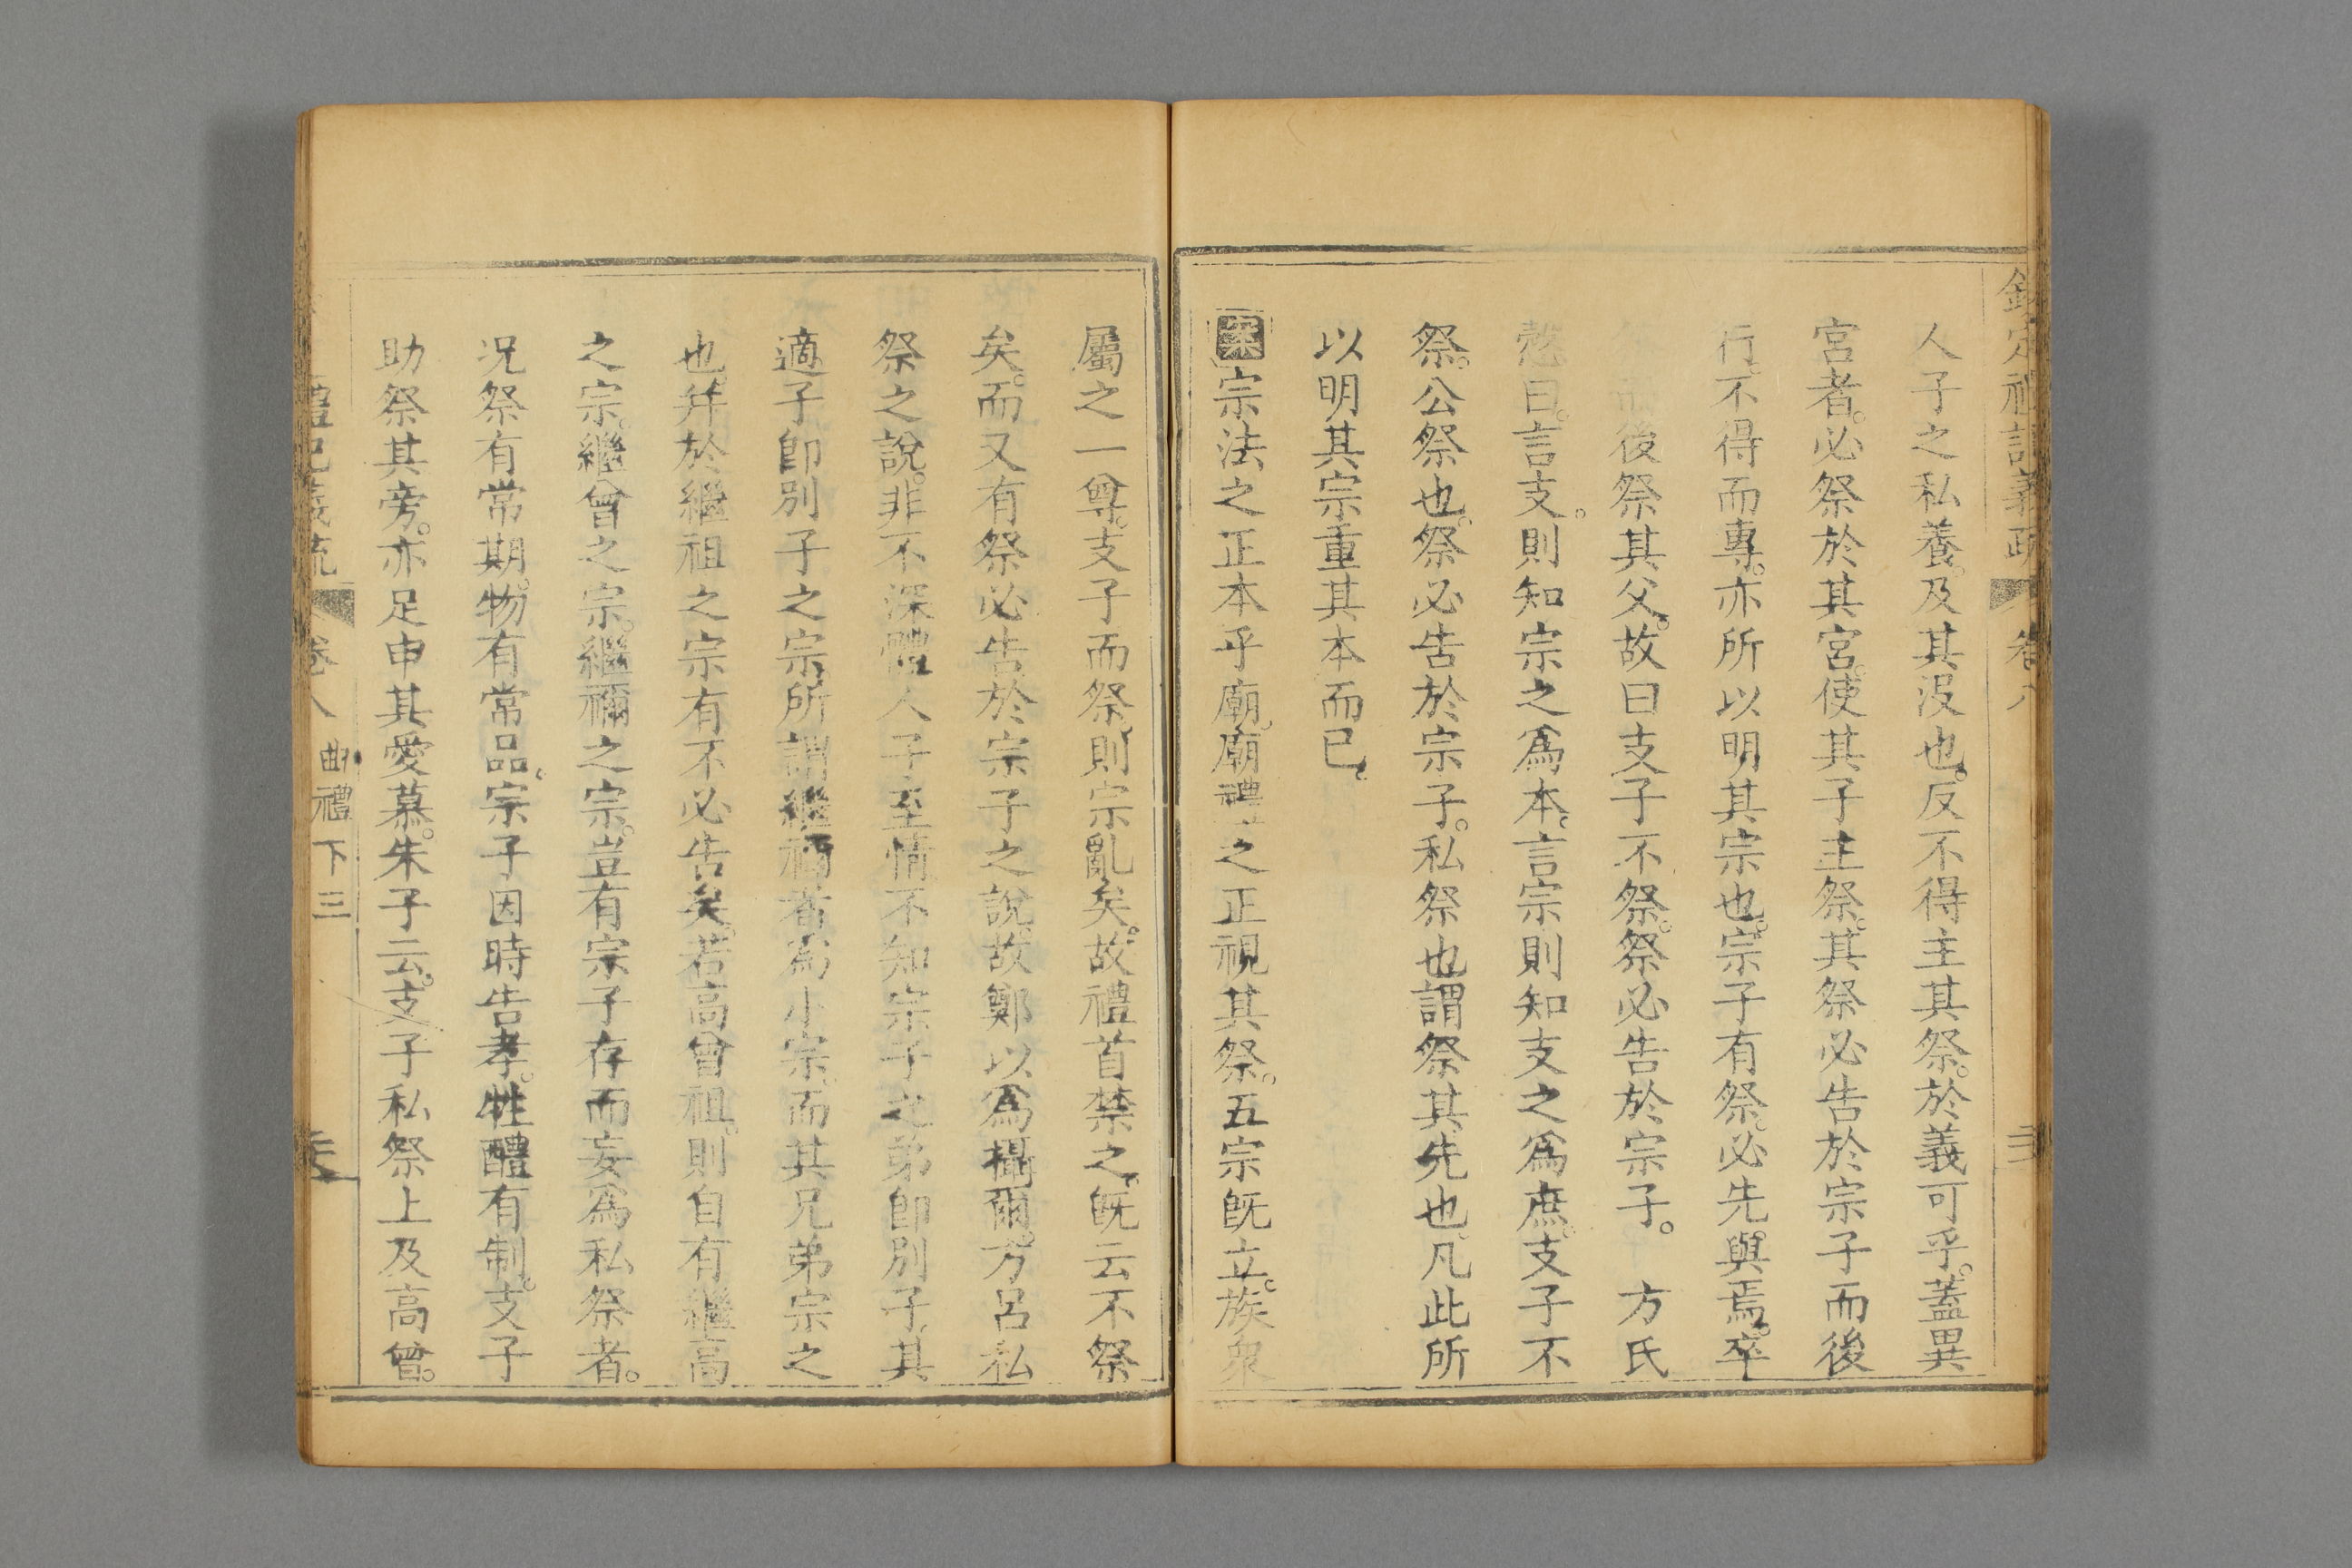 欽定禮記義疏 卷八
人子之私養。及其沒也。反不得主其祭。於義可乎。蓋異
宮者。必祭於其宮。使其子主祭。其祭必告於宗子而後
行。不得而專。亦所以明其宗也。宗子有祭。必先與焉。卒
而後祭其父。故曰支子不祭。祭必告於宗子。 方氏
慤曰。言支。則知宗之為本。言宗則知支之為庶。支子不
祭。公祭也。祭必告於宗子。私祭也。謂祭其先也。凡此所
以明其宗重其本而已。
案宗法之正本乎廟。廟禮之正視其祭。五宗既立。族衆
屬之一尊。支子而祭。則宗亂矣。故禮首禁之。既云不祭
矣。而又有祭必告於宗子之說。故鄭以為攝爾。方呂私
祭之說。非不深體人子至情。不知宗子之弟卽別子。其
適子卽別子之宗。所謂繼禰者為小宗。而其兄弟宗之
也。幷於繼祖之宗有不必告矣。若高曾祖。則自有繼高
之宗。繼曾之宗。繼禰之宗。豈有宗子存而妄為私祭者。
況祭有常期。物有常品。宗子因時告孝。牲醴有制。支子
助祭其旁。亦足申其愛慕。朱子云。支子私祭上及高曾。
禮記義疏 卷八 曲禮下三